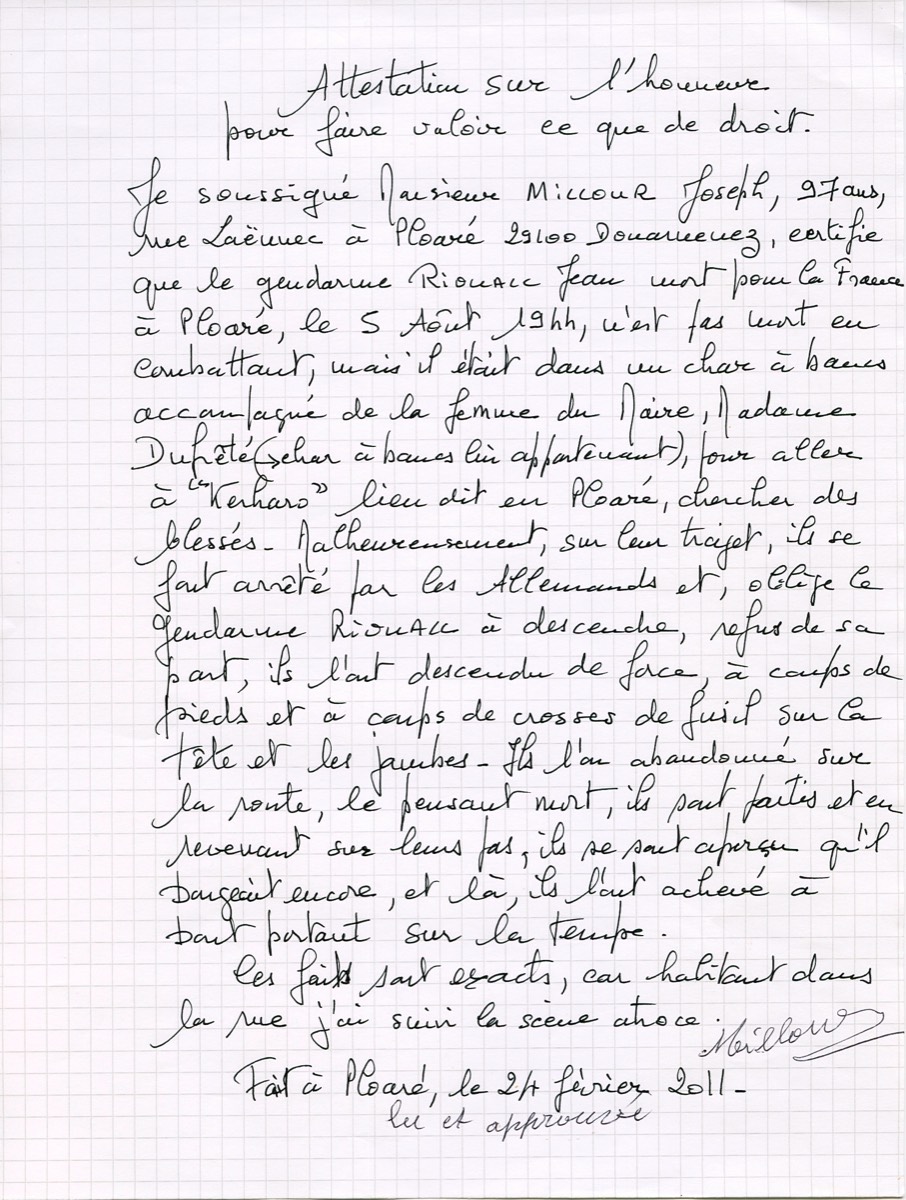 Attestation sur l'honneur
pour faire valoir ce que de droit.
Je soussigné Monsieur MILLOUR Joseph, 97 ans,
rue Laënnec à Ploaré 29100 Douarnenez, certifie
que le gendarme RIOUALL Jean mort pour la France
à Ploaré, le 5 Aôut 1944, n'est pas mort en
combattant, mais il était dans un char à bancs
accompagné de la femme du Maire, Madame
Dufrêté (char à bancs lui appartenant), pour aller
à "Kerharo" lieu dit en Ploaré, chercher des
blessés - Malheureusement, sur leur trajet, ils se
font arrêté par les Allemands et, oblige le
gendarme RIOUALL à descendre, refus de sa
part, ils l'ont descendu de force, à coups de
pieds et à coups de crosses de fusil sur la
tête et les jambes - Ils l'on abandonné sur
la route, le pensant mort, ils sont partis et en
revenant sur leurs pas, ils se sont aperçu qu'il
bougeait encore, et là, ils l'ont achevé à
bout portant sur la tempe.
Les faits sont exacts, car habitant dans
la rue j'ai suivi la scène atroce.
Millour
Fait à Ploaré, le 24 février 2011 -
lu et approuvé